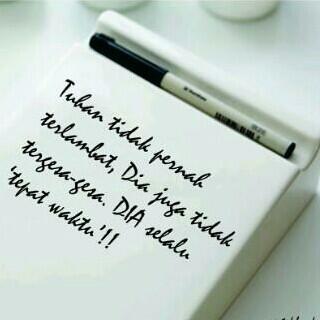 Tuhan tidak pernah
terlambat, Dia juga tidak
tergesa-gesa. DIA selalu
'tepat waktu'!!